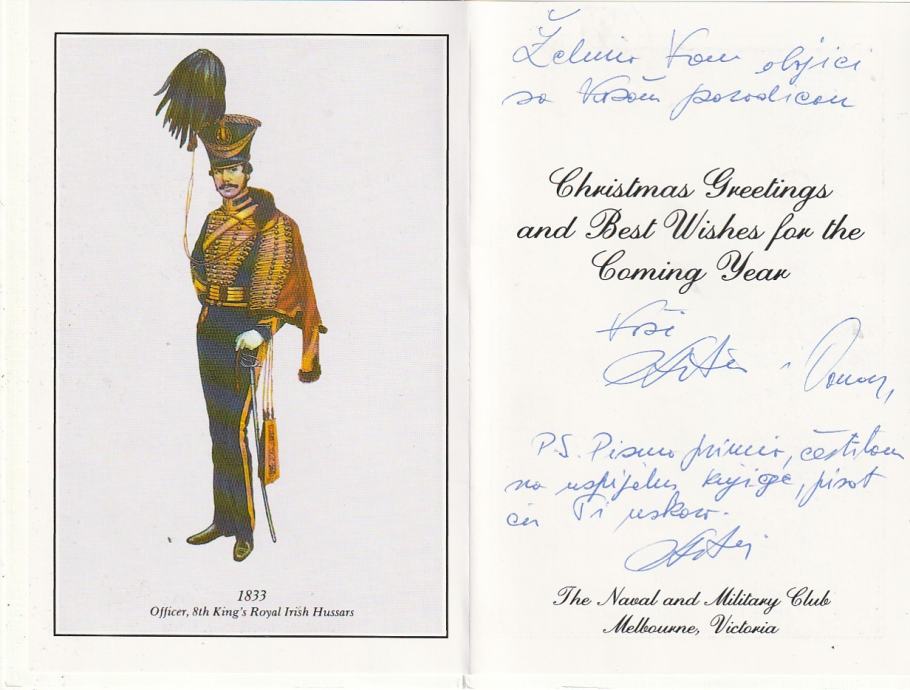 1833
Officer, 8th King's Royal Irish Hussars
Želimo Vam objici
sa Vašom porodicom
Christmas Greetings
and Best Wishes for the
Coming Year
Vaši
i
P.S. Pismo primio, čestitam
na uspjehu knjige, pisat
ću Ti uskoro.
The Naval and Military Club
Melbourne, Victoria